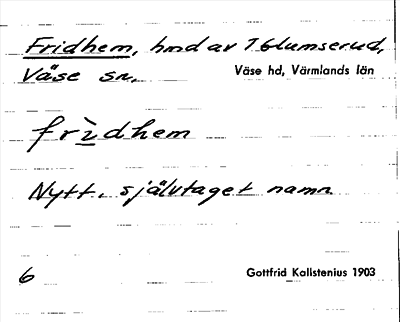 Fridhem, hmd av 7 Glumserud,
Väse sn. Väse hd, Värmlands län
frìdhem
Nytt, självtaget namn
6 Gottfrid Kallstenius 1903